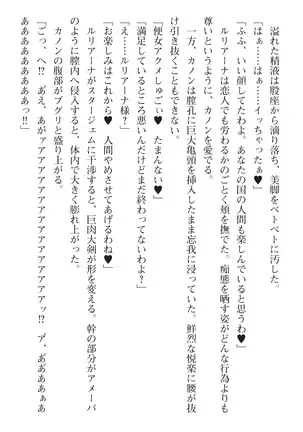 溢れた精液は股座から滴り落ち、美脚をベトベトに汚した。
「はぁ……はぁ……イッちゃったぁ♥」
「ふふ、いい顔してたわよ。あなたの国の人間も楽しんでいると思うわ♥」
ルリアーナは恋人でも労わるかのごとく頬を撫でた。痴態を晒す姿がどんな行為よりも
尊いというように、カノンを愛でる。
一方、カノンは膣孔に巨大亀頭を挿入したまま忘我に浸っていた。鮮烈な悦楽に腰が抜
け引き抜くこともできない。
「便女アクメしゅごぃ♥　たまんなぃ♥」
「満足しているところ悪いんだけどまだ終わってないわよ？」
「え……ルリアーナ様？」
「お楽しみはこれから♥　人間やめさせてあげるわね♥」
ルリアーナがスタージェムに干渉すると、巨肉大剣が形を変える。幹の部分がアメーバ
のように膣内へ侵入すると、体内で大きく膨れ上がった。
カノンの腹部がブクリと盛り上がる。
「ごっ、へ!?　あえ、あがァアアアアアアアアアアアアアアアッ!?　プ、ああああぁあ
ああああああああぁっ!!」